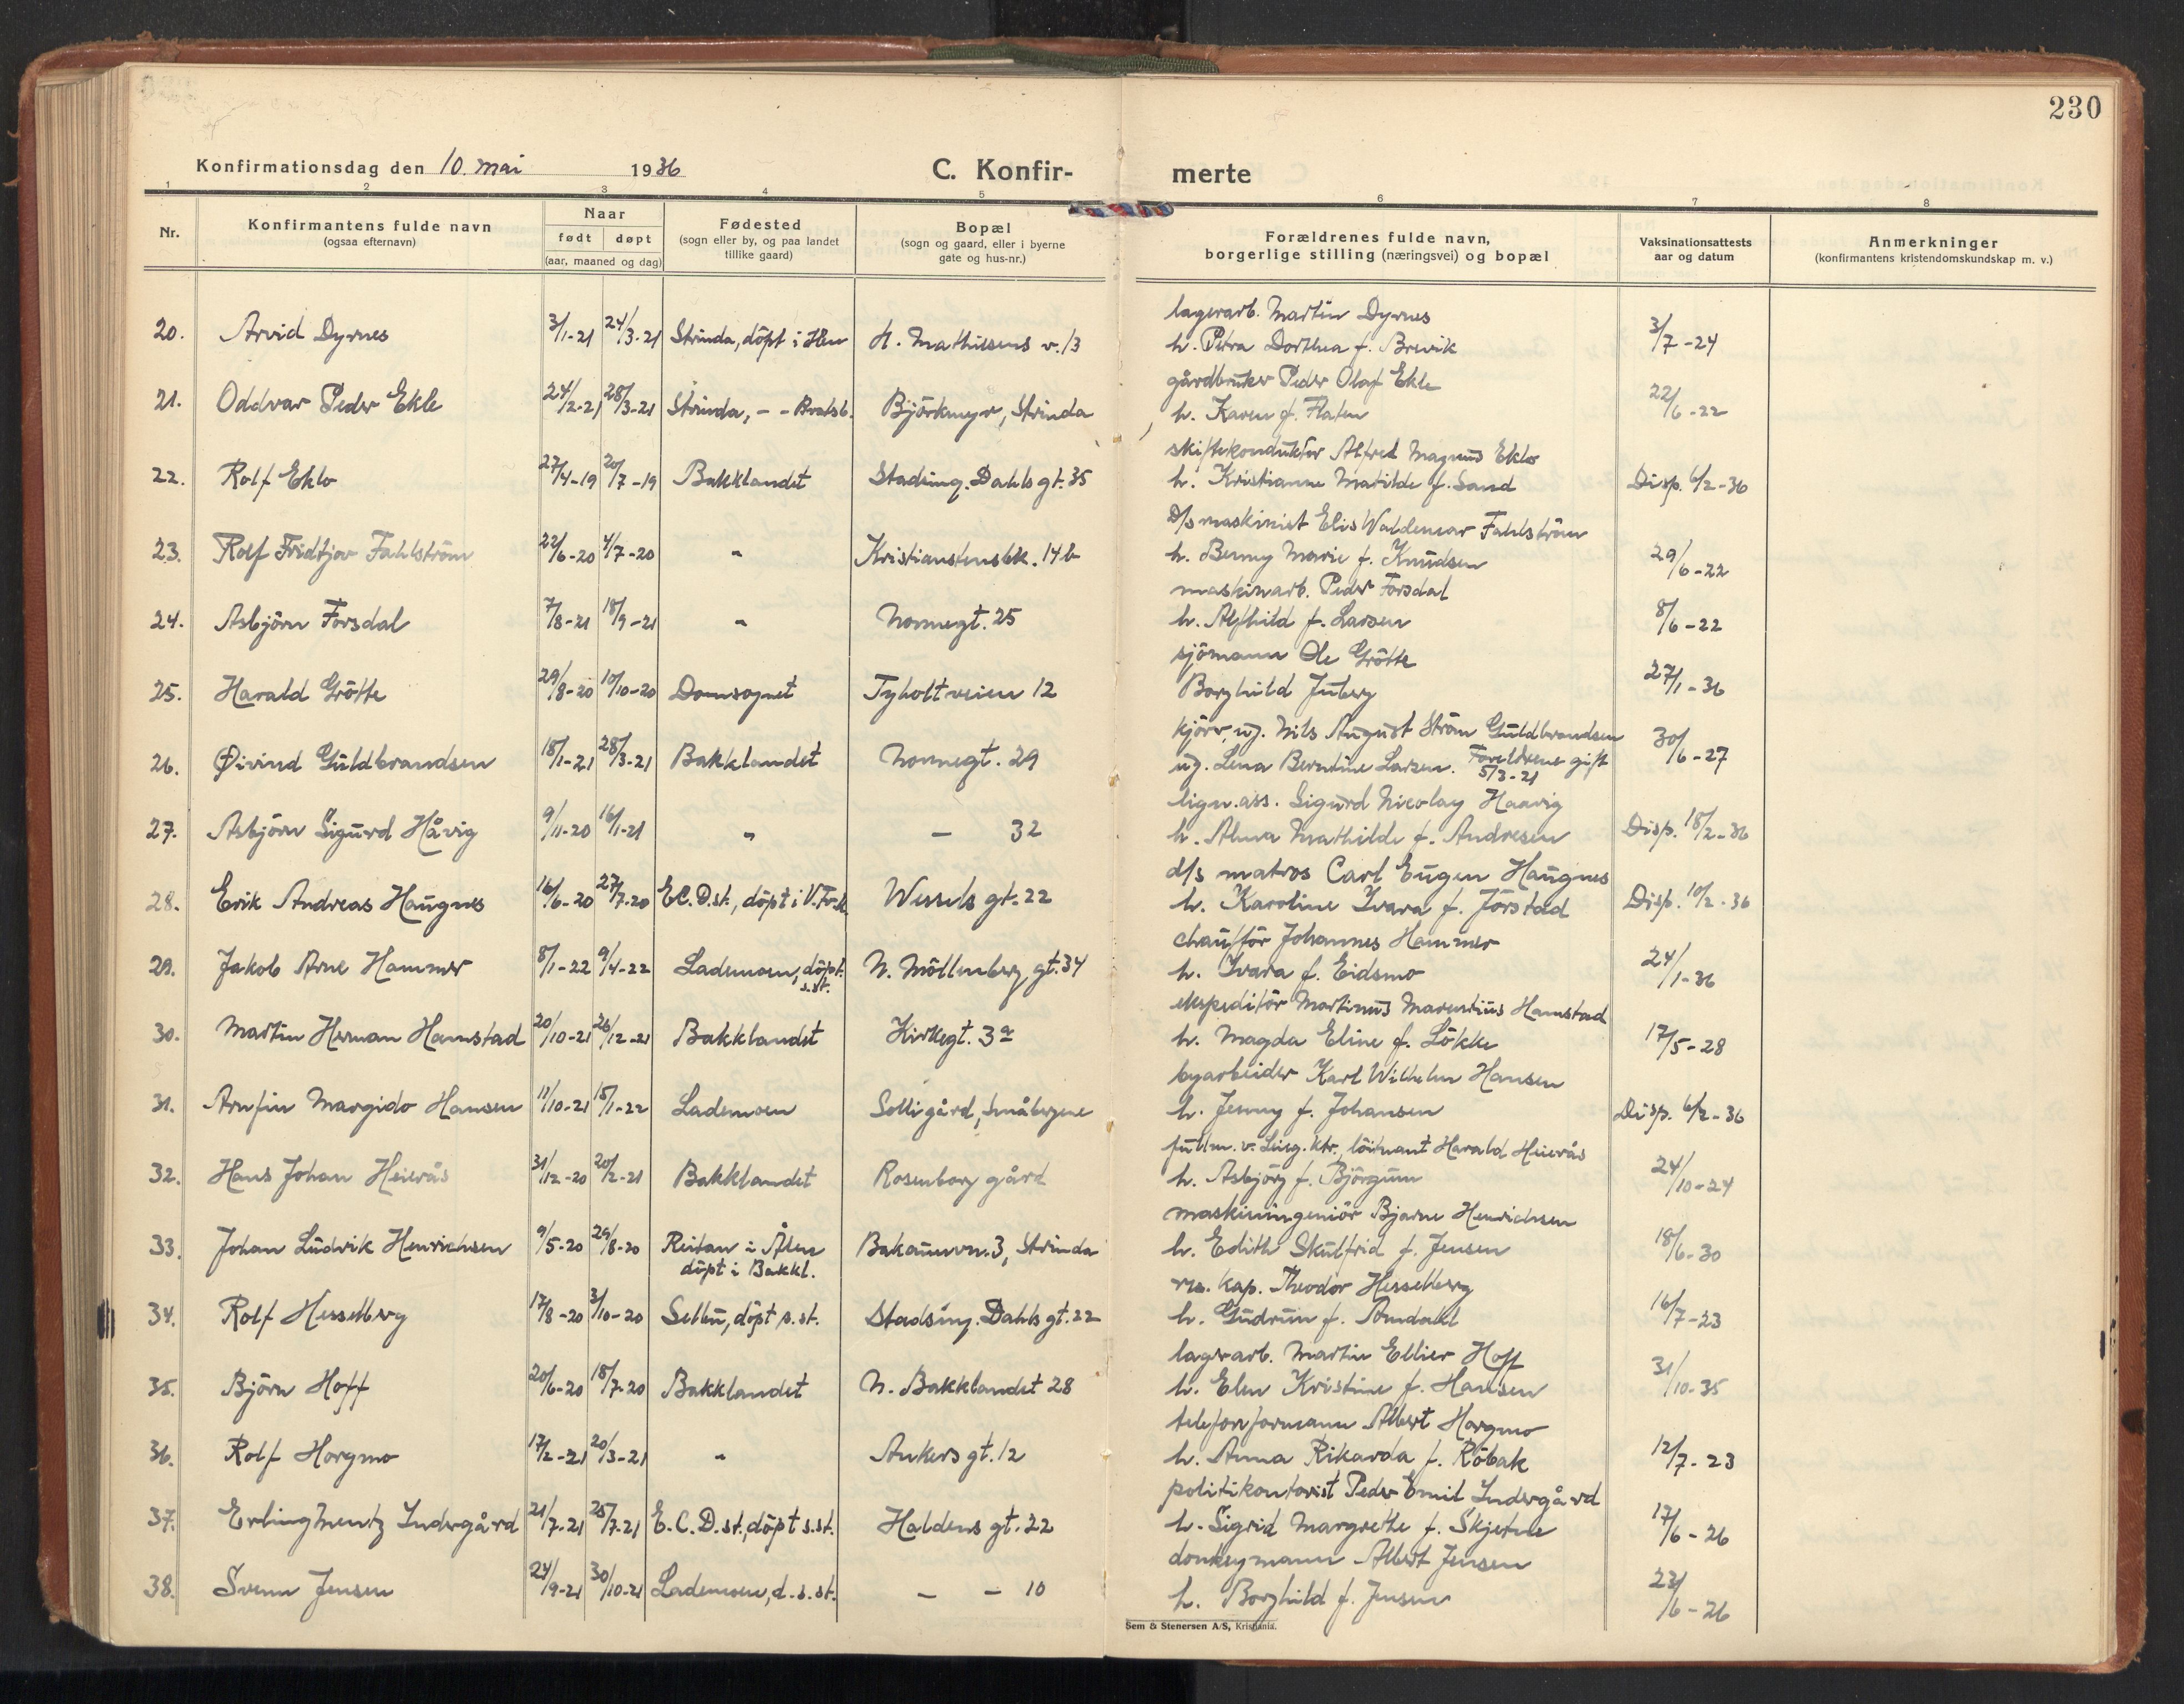 230
Konfirmationsdag den 10. mai 1936 C. Konfir- merte
1 2 3 4 5 6 7 8
Nr. Konfirmantens fulde navn (ogsaa efternavn) Naar født døpt (aar, maaned og dag) Fødested (sogn eller by, og paa landet tillike gaard) Bopæl (sogn og gaard, eller i byerne gate og hus-nr.) Forældrenes fulde navn, borgerlige stilling (næringsvei) og bopæl Vaksinationsattests aar og datum Anmerkninger (konfirmantens kristendomskundskap m. v.)
lagerarb. Martin Dyrnes
20. Arvid Dyrnes 3/1-21 24/3-21 Strinda, döpt i H. Mathiesens v. 13 h. Petra Dorthea f. Brevik 3/7-24
gårdbruker Peder Olaf Ekle
21. Oddvar Peder Ekle 24/2-21 28/3-21 Strinda, - - Bratsb. Björkmyr, Strinda h. Karen f. Flaten 22/6-22
skiftekonduktör Alfred Magnus Eklo
22. Rolf Eklo 27/4-19 20/7-19 Bakklandet Stadsing. Dahls gt. 35 h. Kristianne Matilde f. Sand Disp. 6/2-36
D/s maskinist Elis Waldemar Fahlström
23. Rolf Fridtjov Fahlström 22/6-20 4/7-20 " Kristianstensbk. 14b h. Benny Marie f. Knudsen 29/6-22
maskinarb. Peder Forsdal
24. Asbjörn Forsdal 7/8-21 18/9-21 " Nonnegt. 25 h. Alfhild f. Larsen 8/6-22
sjömann Ole Grötte
25. Harald Grötte 29/8-20 10/10-20 Domsognet Tyholtveien 12 Borghild Juberg 27/1-36
kjörer ug. Nils August Ström Guldbrandsen
26. Øivind Guldbrandsen 18/1-21 28/3-21 Bakklandet Nonnegt. 29 ug. Lena Berntine Larsen. Foreldrene gift 5/3-21 30/6-27
lign.ass. Sigurd Nicolay Haavig
27. Asbjörn Sigurd Håvig 9/11-20 16/1-21 " - 32 h. Alma Mathilde f. Andresen Disp. 18/2-36
d/s matros Carl Eugen Haugnes
28. Erik Andreas Haugnes 16/6-20 27/7-20 E.C.D.st., döpt i V.Fr.k. Wessels gt. 22 h. Karoline Ivara f. Jörstad Disp. 10/2-36
chaufför Johannes Hammer
29. Jakob Arne Hammer 8/1-22 9/4-22 Lademoen, döpt s.st. N. Möllenberg gt. 34 h. Ivara f. Eidsmo 24/1-36
ekspeditör Martinus Marentius Hamstad
30. Martin Herman Hamstad 20/10-21 26/12-21 Bakklandet Kirkegt. 3a h. Magda Eline f. Lökke 17/5-28
byarbeider Karl Wilhelm Hansen
31. Arnfin Margido Hansen 11/10-21 15/1-22 Lademoen Solligård, Småbergene h. Jenny f. Johansen Disp. 6/2-36
fullm. v. ktr., löitnant Harald Heierås
32. Hans Johan Heierås 31/12-20 20/2-21 Bakklandet Rosenborg gård h. Asbjörg f. Björgum 24/10-24
maskiningeniör Bjarne Henrichsen
33. Johan Ludvik Henrichsen 9/5-20 29/8-20 Reitan i Ålen döpt i Bakkl. Bakaunevn. 3, Strinda h. Edith Skulfrid f. Jensen 18/6-30
rms. kap. Theodor Hesselberg
34. Rolf Hesselberg 17/8-20 3/10-20 Selbu, döpt s.st. Stadsing. Dahls gt. 22 h. Gudrun f. Amdahl 16/7-23
lagerarb. Martin Ellier Hoff
35. Björn Hoff 20/6-20 18/7-20 Bakklandet N. Bakklandet 28 h. Elen Kristine f. Hansen 31/10-35
telefonformann Albert Horgmo
36. Rolf Horgmo 17/2-21 20/3-21 " Ankers gt. 12 h. Anna Rikarda f. Röbak 12/7-23
politikontorist Peder Emil Indergård
37. Erling Mentz Indergård 21/7-21 25/7-21 E.C.D.st., döpt s.st. Haldens gt. 22 h. Sigrid Margrethe f. Skjetne 17/6-26
donkeymann Albert Jensen
38. Svenn Jensen 24/9-21 30/10-21 Lademoen, d. s.st. - - 10 h. Borghild f. Jensen 23/6-26
Sem & Stenersen A/S, Kristiania.